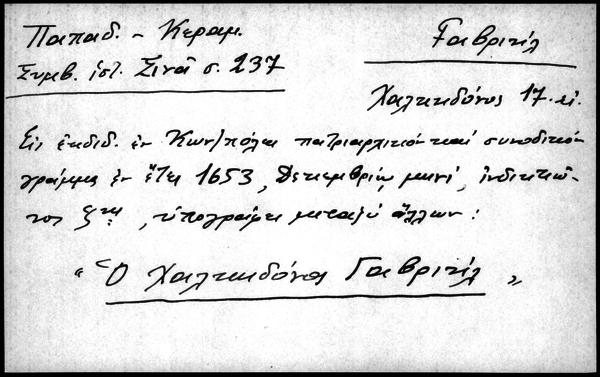 Παπαδ. - Κεραμ.
Συμβ. ἱστ. Σινᾶ σ. 237
Γαβριὴλ
Χαλκηδόνος 17. αἰ.
Εἰς ἐκδιδ. ἐν Κων/πόλει πατριαρχικὸν καὶ συνοδικὸν
γράμμα ἐν ἔτει 1653, Δεκεμβρίῳ μηνί, ἰνδικτιῶ-
νος ζης, ὑπογράφει μεταξὺ ἄλλων:
"Ὁ Χαλκηδόνος Γαβριὴλ"